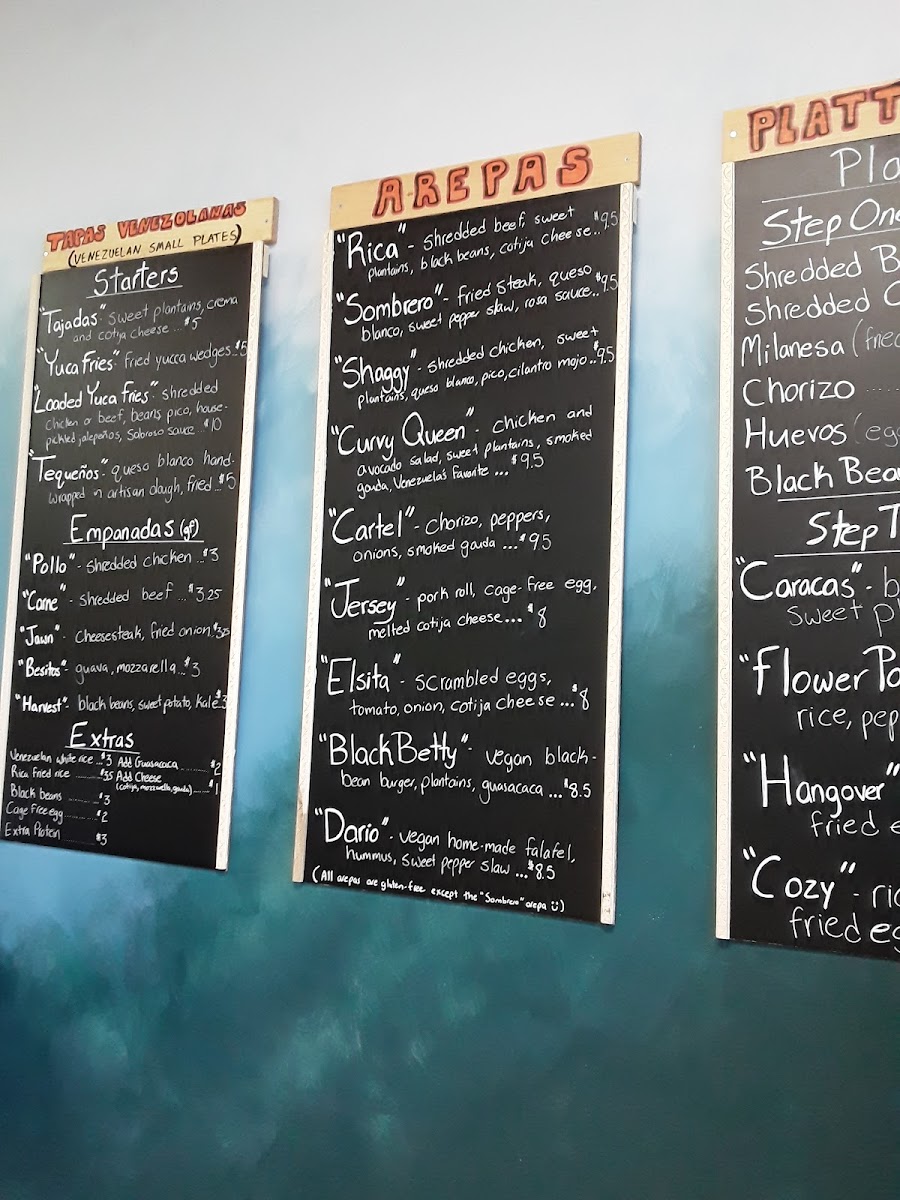 TAPAS VENEZOLANAS
(VENEZUELAN SMALL PLATES)
Starters
"Tajadas" - sweet plantains, crema
and cotija cheese ... $5
"Yuca Fries" - fried yucca wedges .. $5
"Loaded Yuca Fries" - shredded
chicken or beef, beans pico, house-
pickled jalepeños, Sabroso Sauce ... $10
"Tequeños" - queso blanco hand-
wrapped in artisan dough, fried .. $5
Empanadas (gf)
"Pollo" - shredded chicken ... $3
"Carne" - shredded beef ... $3.25
"Jawn" - cheesesteak, fried onion. $3.25
"Besitos" - guava, mozzarella ... $3
"Harvest" - black beans, sweet potato, kale $3
Extras
Venezuelan white rice ... $3
Rica Fried rice ...... $3.5
Black beans ...... $3
Cage Free egg ...... $2
Extra Protein ...... $3
Add Guasacaca ...... $2
Add Cheese
(cotija, mozzarella, gouda) ..... $1
AREPAS
"Rica" - shredded beef, sweet
plantains, black beans, cotija cheese .. $9.5
"Sombrero" - fried steak, queso
blanco, sweet pepper slaw, rosa sauce .. $9.5
"Shaggy" - shredded chicken, sweet
plantains, queso blanco, pico, cilantro mojo .. $9.5
"Curvy Queen" - chicken and
avocado salad, sweet plantains, smoked
gouda, Venezuela's favorite ... $9.5
"Cartel" - chorizo, peppers,
onions, smoked gouda ... $9.5
"Jersey" - pork roll, cage-free egg,
melted cotija cheese ... $8
"Elsita" - scrambled eggs,
tomato, onion, cotija cheese ... $8
"Black Betty" - vegan black-
bean burger, plantains, guasacaca ... $8.5
"Dario" - vegan home-made falafel,
hummus, sweet pepper slaw ... $8.5
(All arepas are gluten-free except the "Sombrero" arepa :))
PLATT
Pla
Step One
Shredded B
Shredded C
Milanesa (fried
Chorizo ......
Huevos (eg
Black Bea
Step T
"Caracas" - b
sweet pl
"Flower Po
rice, pep
"Hangover"
fried e
"Cozy" - ric
fried eg